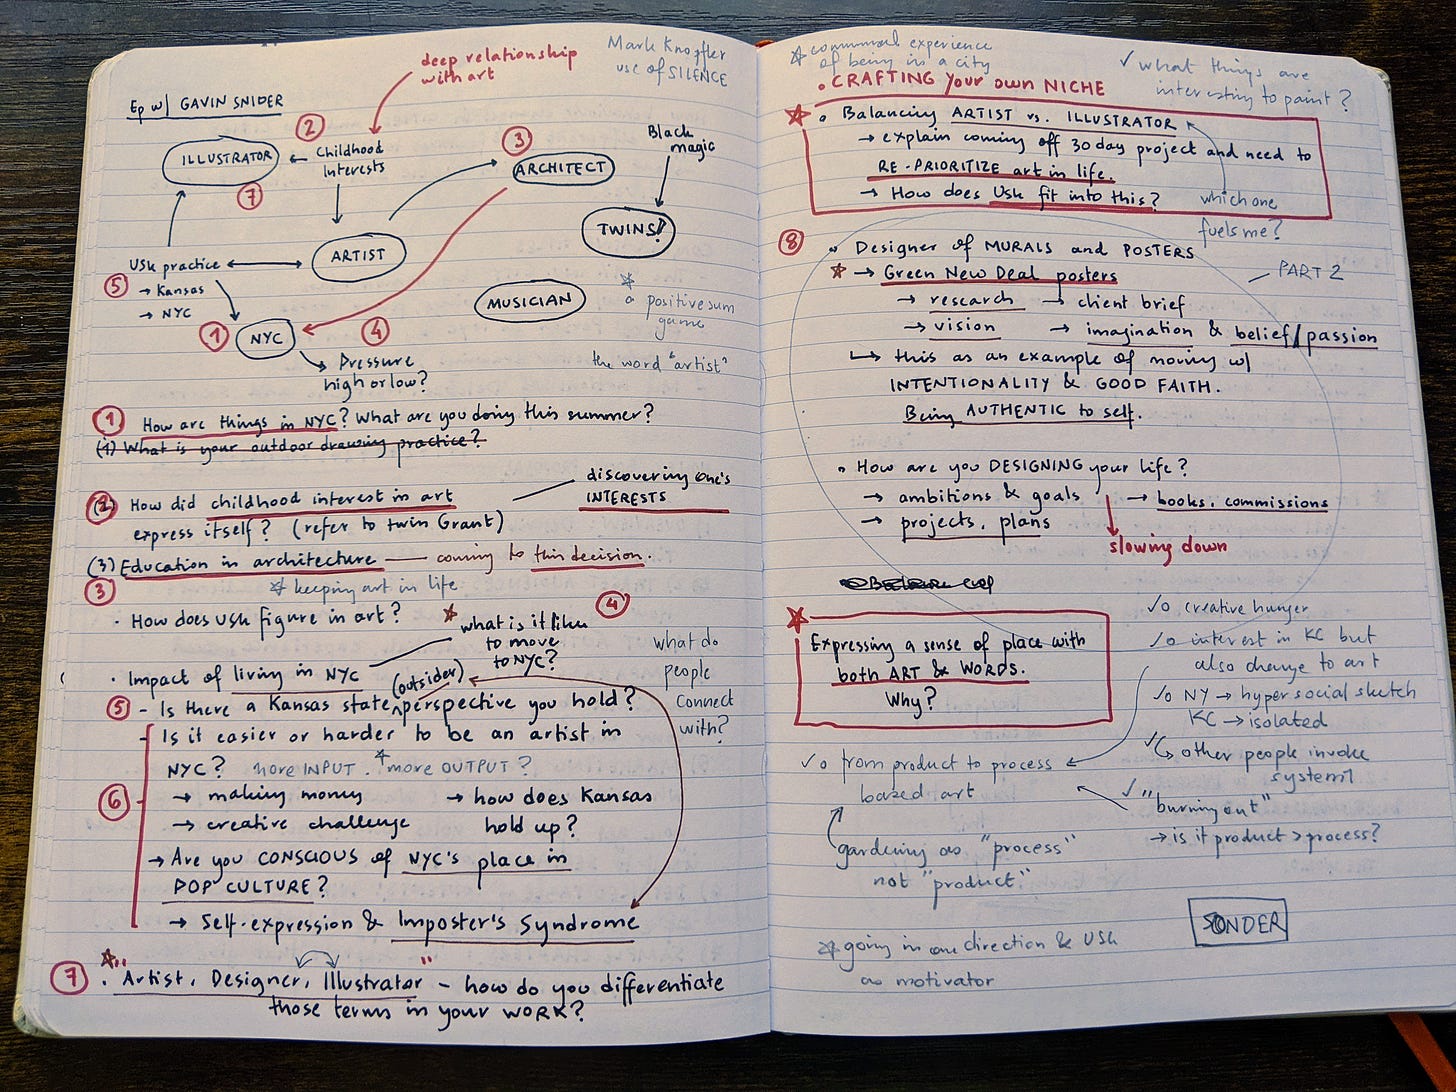 deep relationship
with art
Mark Knopfler
use of SILENCE
Ep w/ GAVIN SNIDER
2
3
Black
magic
ILLUSTRATOR
Childhood
Interests
ARCHITECT
7
TWINS!
USk practice
ARTIST
5
→ Kansas
→ NYC
MUSICIAN
a positive sum
game
1
NYC
4
the word "artist"
Pressure
high or low?
1 How are things in NYC? What are you doing this summer?
(1) What is your outdoor drawing practice?
discovering one's
INTERESTS
(2) How did childhood interest in art
express itself? (refer to twin Grant)
(3) Education in architecture — coming to this decision.
3
keeping art in life
· How does USk figure in art?
what is it like
to move
to NYC?
4
what do
people
connect
with?
· Impact of living in NYC
(outsider)
5 - Is there a Kansas state perspective you hold?
- Is it easier or harder to be an artist in
NYC? more INPUT. more OUTPUT?
6
→ making money
→ how does Kansas
hold up?
→ creative challenge
→ Are you CONSCIOUS of NYC's place in
POP CULTURE?
→ Self-expression & Imposter's Syndrome
7 · "Artist, Designer, Illustrator" - how do you differentiate
those terms in your WORK?
communal experience
of being in a city
✓ what things are
interesting to paint?
• CRAFTING your own NICHE
Balancing ARTIST vs. ILLUSTRATOR
→ explain coming off 30 day project and need to
RE-PRIORITIZE art in life.
→ How does USk fit into this?
which one
fuels me?
8
Designer of MURALS and POSTERS
PART 2
→ Green New Deal posters
→ research → client brief
→ vision → imagination & belief/passion
↳ this as an example of moving w/
INTENTIONALITY & GOOD FAITH.
Being AUTHENTIC to self.
• How are you DESIGNING your life?
→ ambitions & goals
→ books, commissions
→ projects, plans
slowing down
Expressing a sense of place with
both ART & WORDS.
Why?
✓ o creative hunger
✓ o interest in KC but
also change to art
✓ o NY → hyper social sketch
KC → isolated
✓ ↳ other people invoke
✓ o from product to process
based art
✓ "burning out"
→ is it product > process?
gardening as "process"
not "product"
SONDER
going in one direction & USk
as motivator